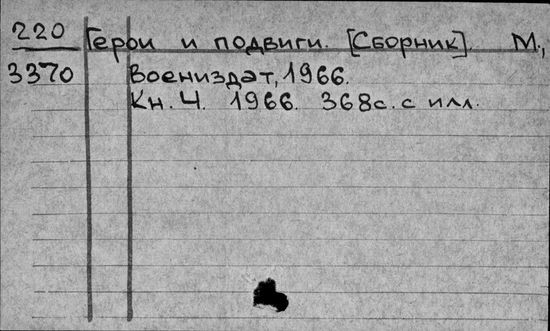 220 Герои и подвиги. [Сборник]. М.,
3370 Воениздат, 1966.
Кн. 4. 1966. 368с. с илл.